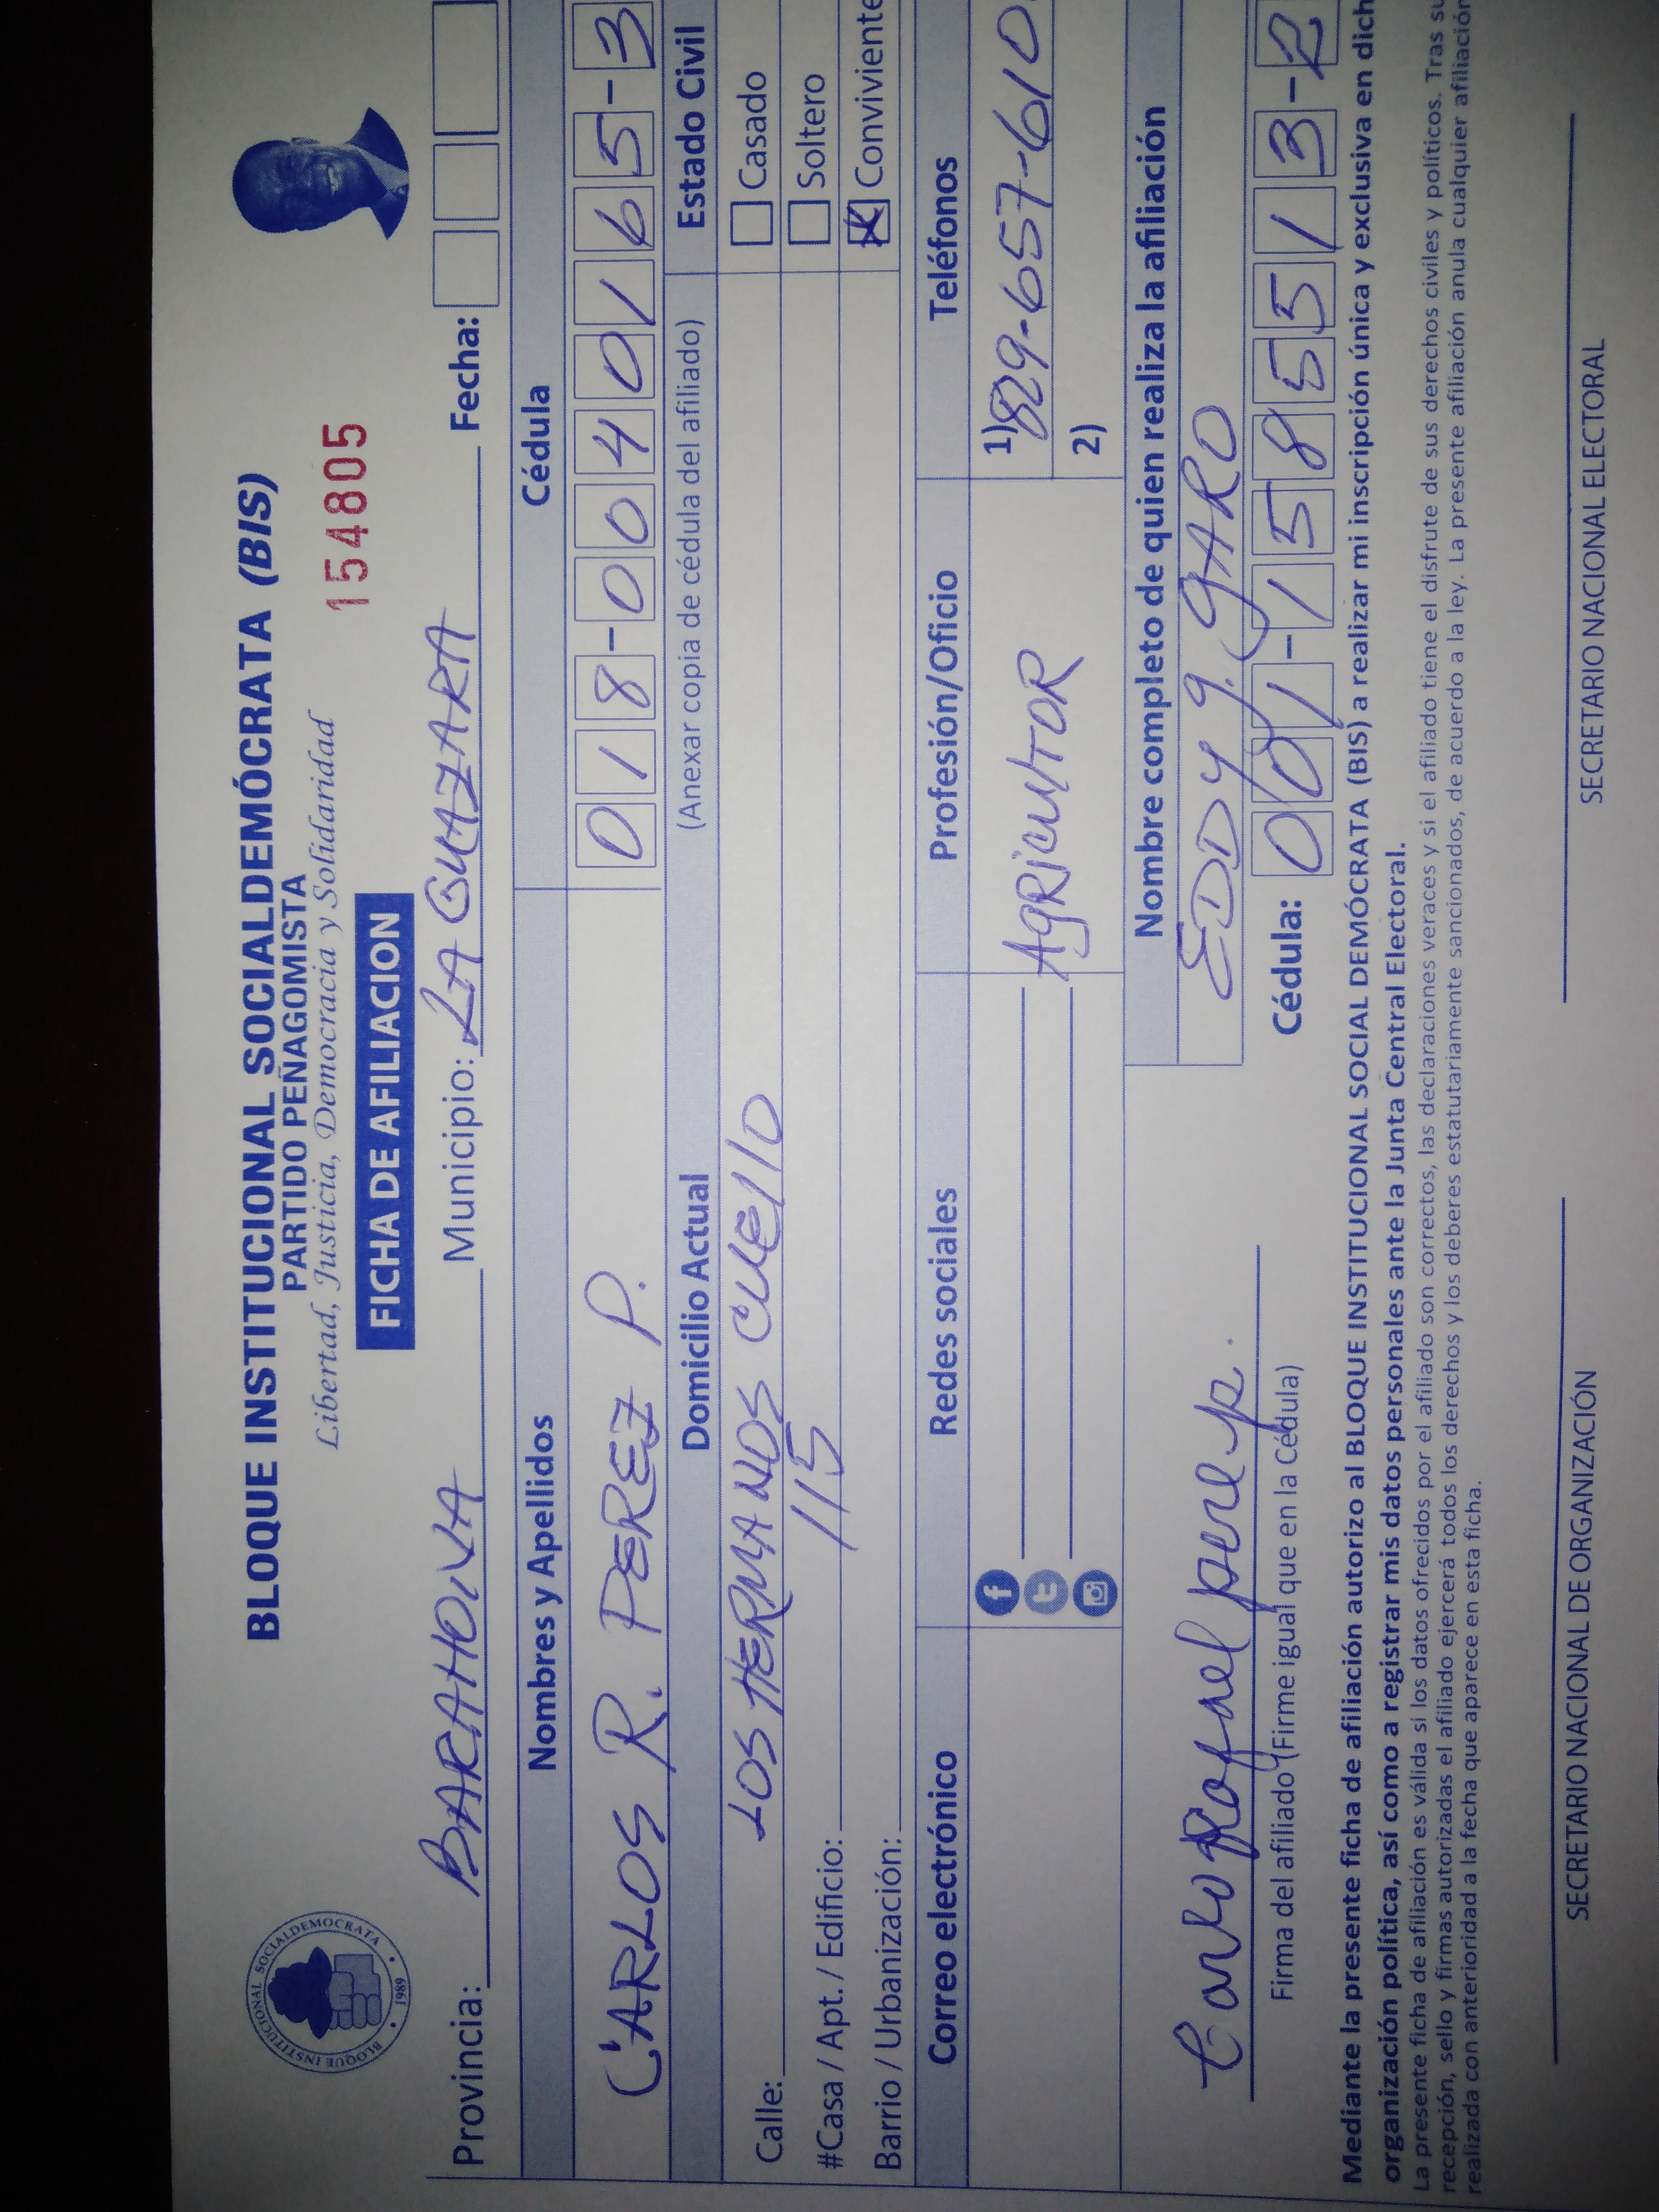 BLOQUE INSTITUCIONAL SOCIALDEMÓCRATA (BIS)
PARTIDO PEÑAGOMISTA
Libertad, Justicia, Democracia y Solidaridad
154805
FICHA DE AFILIACION
BLOQUE INSTITUCIONAL SOCIALDEMOCRATA • 1989 •
Provincia: BARAHOWA Municipio: LA GUAZARA Fecha:
Nombres y Apellidos Cédula
CARLOS R. PEREZ P. 018-0040165-3
Domicilio Actual (Anexar copia de cédula del afiliado) Estado Civil
Calle: LOS HERMANOS CUELLO Casado
#Casa / Apt. / Edificio: 115 Soltero
Barrio / Urbanización: Conviviente
Correo electrónico Redes sociales Profesión/Oficio Teléfonos
AGRICULTOR 1) 829-657-610
2)
Nombre completo de quien realiza la afiliación
EDDY G. GARO
Cédula: 001-1585513-2
Carlos Rafael perez p.
Firma del afiliado (Firme igual que en la Cédula)
Mediante la presente ficha de afiliación autorizo al BLOQUE INSTITUCIONAL SOCIAL DEMÓCRATA (BIS) a realizar mi inscripción única y exclusiva en dich
organización política, así como a registrar mis datos personales ante la Junta Central Electoral.
La presente ficha de afiliación es válida si los datos ofrecidos por el afiliado son correctos, las declaraciones veraces y si el afiliado tiene el disfrute de sus derechos civiles y políticos. Tras su
recepción, sello y firmas autorizadas el afiliado ejercerá todos los derechos y los deberes estatutariamente sancionados, de acuerdo a la ley. La presente afiliación anula cualquier afiliación
realizada con anterioridad a la fecha que aparece en esta ficha.
SECRETARIO NACIONAL DE ORGANIZACIÓN SECRETARIO NACIONAL ELECTORAL